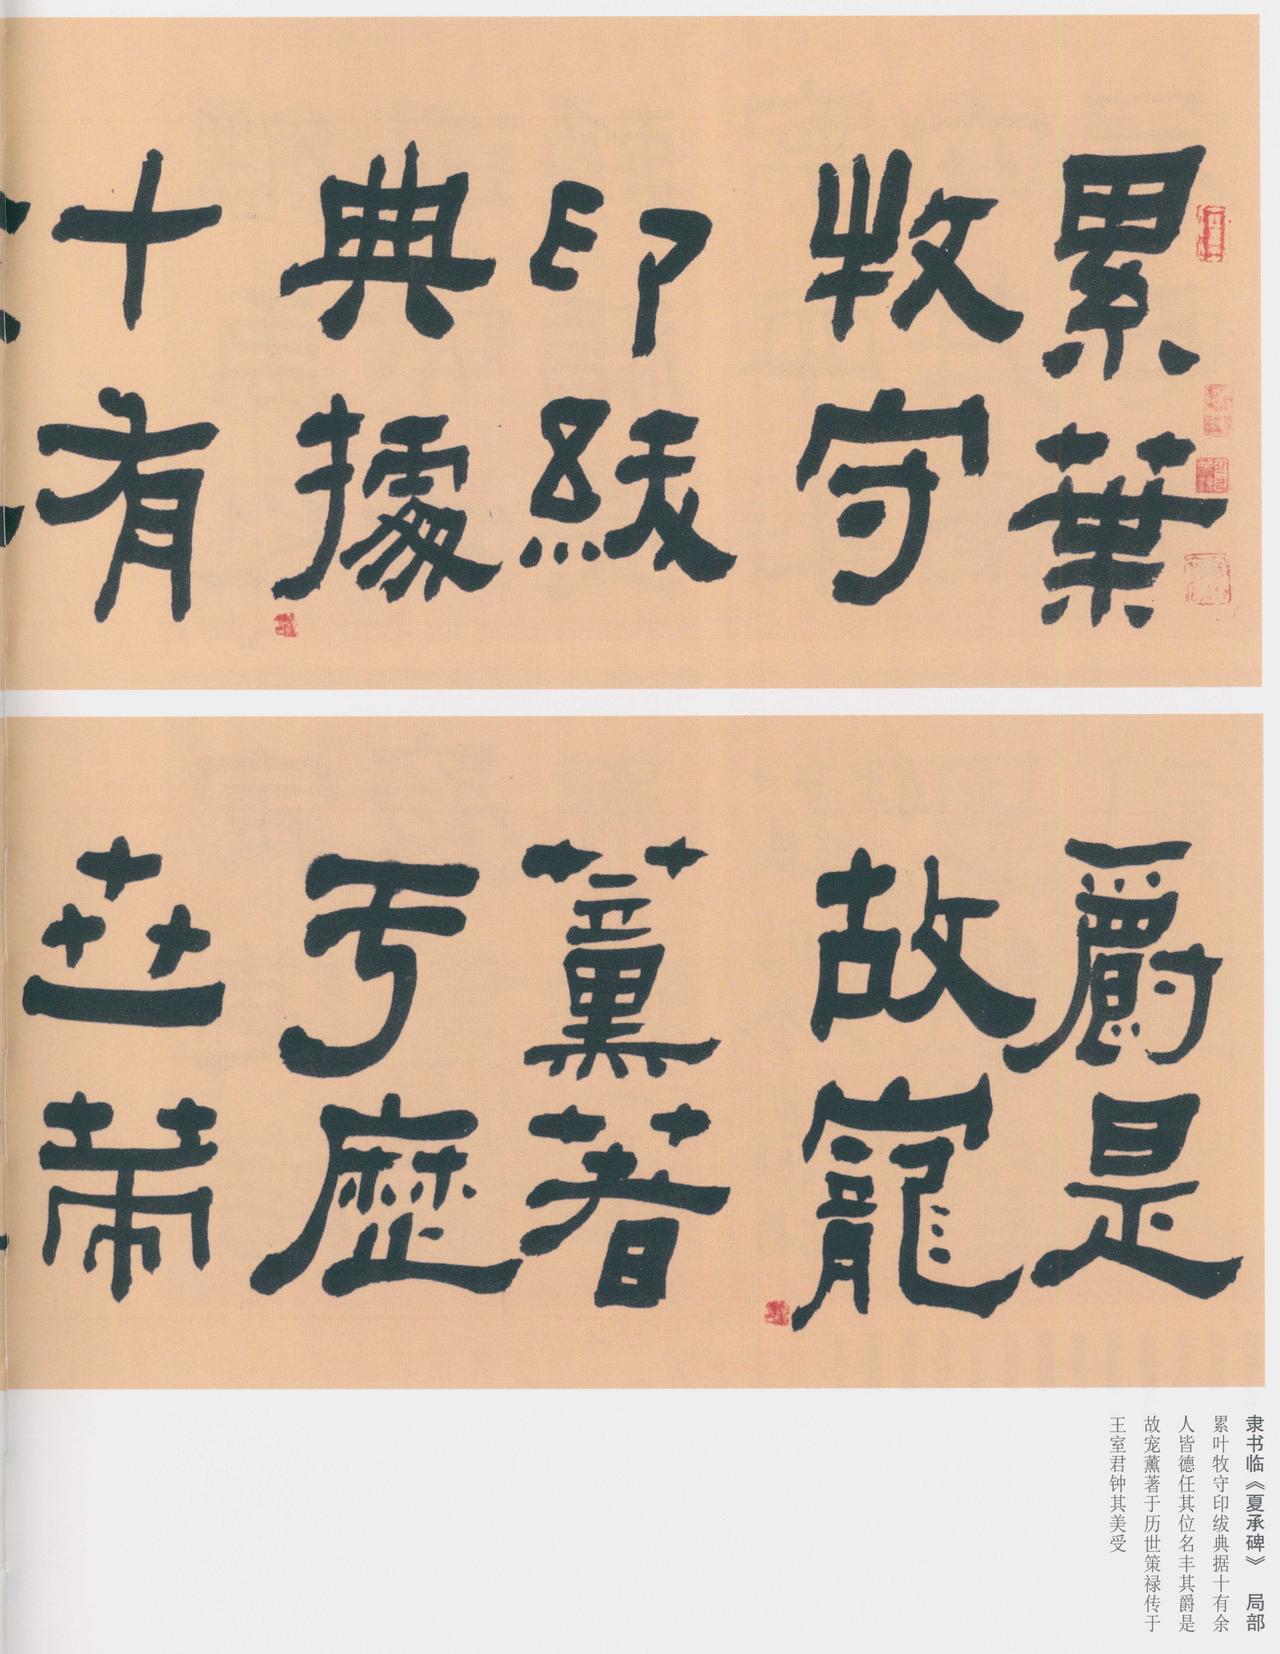 累葉
牧守
印紱
典據
十有
爵是
故寵
薰著
于歷
世策
隶书临《夏承碑》 局部
累叶牧守印绂典据十有余
人皆德任其位名丰其爵是
故宠薰著于历世策禄传于
王室君钟其美受